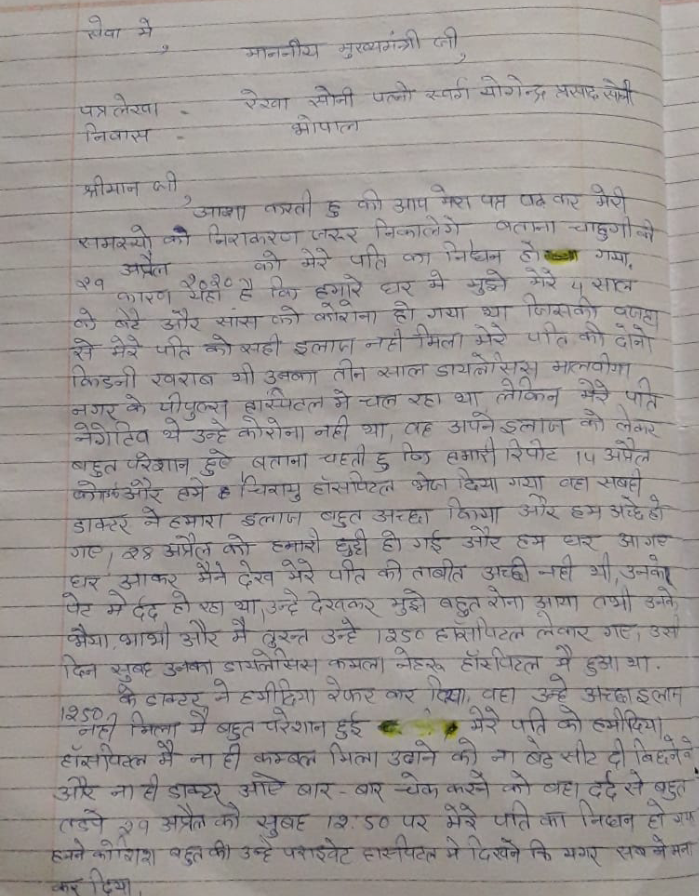 सेवा मे,
माननीय मुख्यमंत्री जी,
पत्र लेखा - रेखा सोनी पत्नी स्वर्ग योगेन्द्र प्रसाद सोनी
निवास - भोपाल
श्रीमान जी,
आशा करती हु की आप मेरा पत्र पढ कर मेरी
समस्यो को निराकरण जरूर निकालेगे बताना चाहुगी की
२९ अप्रैल २०२० को मेरे पति का निधन हो गया,
कारण यहा है कि हमारे घर मे मुझे मेरे ५ साल
के बेटे और सांस को कोरोना हो गया था जिसकी वजहा
से मेरे पति को सही इलाज नही मिला मेरे पति की दोनो
किडनी खराब थी उनका तीन साल डायलेसिस मालवीया
नगर के पीपुल्स हास्पिटल मे चल रहा था लेकिन मेरे पति
नेगेटिव थे उन्हे कोरोना नही था, वह अपने इलाज को लेकर
बहुत परेशान हुऐ बताना चहती हु कि हमारी रिपोट 14 अप्रैल
और हमे चिरायु हॉसपिटल भेज दिया गया वहा सबही
डाक्टर ने हमारा इलाज बहुत अच्छा किया और हम अच्छे हो
गए, २४ अप्रैल को हमारी छुट्टी हो गई और हम घर आ गए
घर आकर मैने देख मेरे पति की ताबीत अच्छी नही थी, उनके
पेट मे दर्द हो रहा था, उन्हे देखकर मुझे बहुत रोना आया तभी उनके
भैया, भाभी और मै तुरन्त उन्हे 1250 हॉसपिटल लेकार गए, उसी
दिन सुबह उनका डायलेसिस कमला नेहरू हॉस्पिटल मै हुआ था.
1250 के डाक्टर ने हमीदिया रेफर कर दिया, वहा उन्हे अच्छा इलाज
नही मिला मै बहुत परेशान हुई मेरे पति को हमीदिया
हॉसपिटल मै ना ही कम्बल मिला उढाने को ना बेट सीट दी बिछाने के
और ना ही डाक्टर आऐ बार-बार चेक करने को वहा दर्द से बहुत
तडपे २९ अप्रैल को सुबह 12:50 पर मेरे पति का निधन हो गया
हमने कोशिश बहुत की उन्हे पराइवेट हास्पिटल मे दिखाने कि मगर सब ने मना
कर दिया.